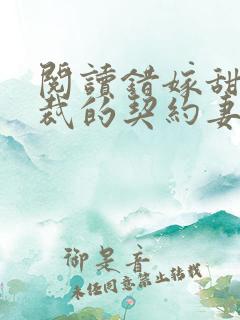 閱讀錯嫁甜
裁的契約妻
御是音
未经同意禁止转载